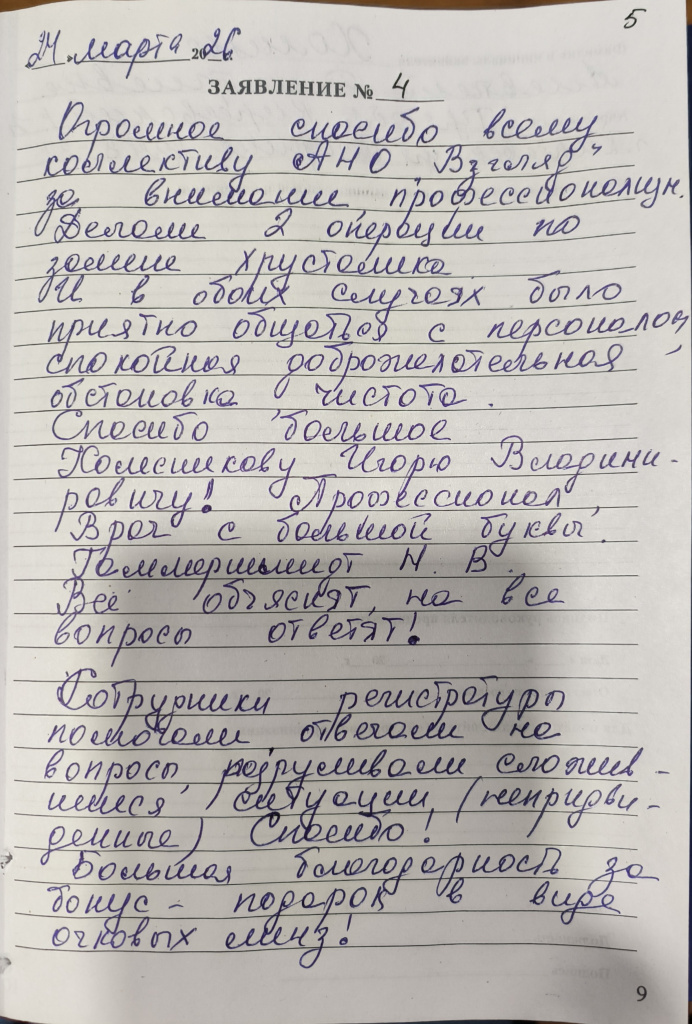 5
24 марта 2026.
ЗАЯВЛЕНИЕ № 4
Огромное спасибо всему
коллективу АНО "Взгляд"
за внимание, профессионализм.
Делали 2 операции по
замене хрусталика.
И в обоих случаях было
приятно общаться с персоналом,
спокойная доброжелательная
обстановка, чистота.
Спасибо большое
Колесникову Игорю Владими-
ровичу! Профессионал,
Врач с большой буквы.
Гаммершмидт Н. В.
Всё объяснят, на все
вопросы ответят!
Сотрудники регистратуры
помогали отвечали на
вопросы, разруливали сложив-
шиеся ситуации, (непридви-
денные) Спасибо!
Большая благодарность за
бонус - подарок в виде
очковых линз!
9